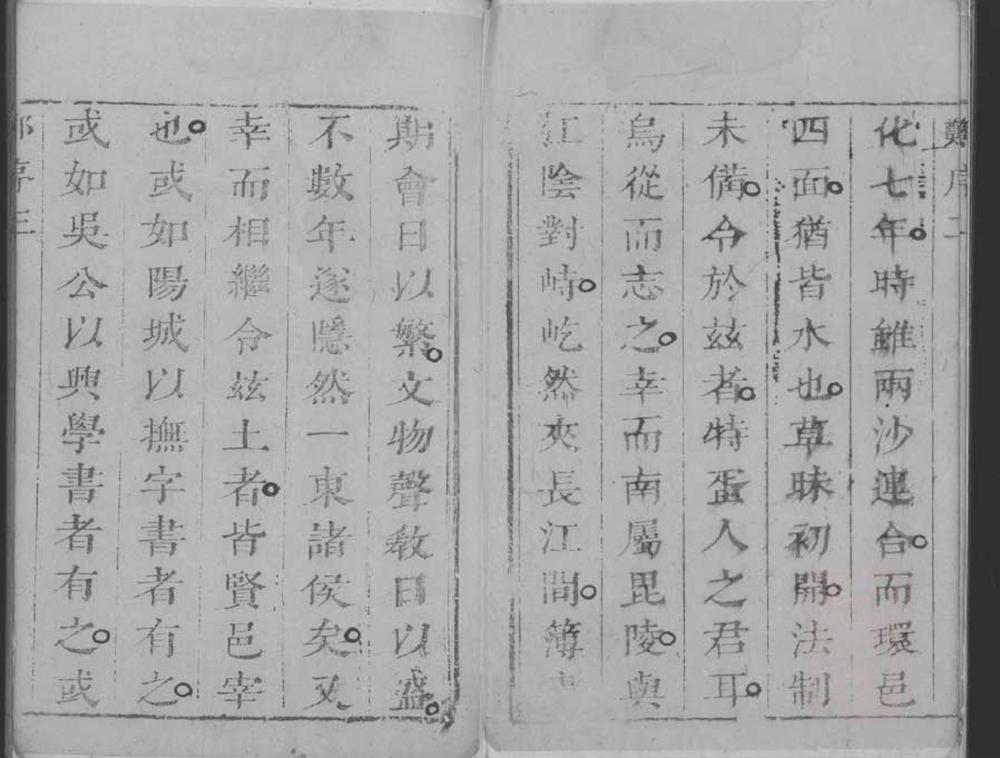 鄭序二
化七年時雖兩沙連合而環邑
四面猶皆水也草昧初開法制
未備令於玆者特蛋人之君耳
烏從而志之幸而南屬毘陵與
江陰對峙屹然夾長江間簿
期會日以繁文物聲敎日以盛
不數年遂隱然一東諸侯矣又
幸而相繼令玆土者皆賢邑宰
也或如陽城以撫字書者有之
或如吳公以興學書者有之或
序三